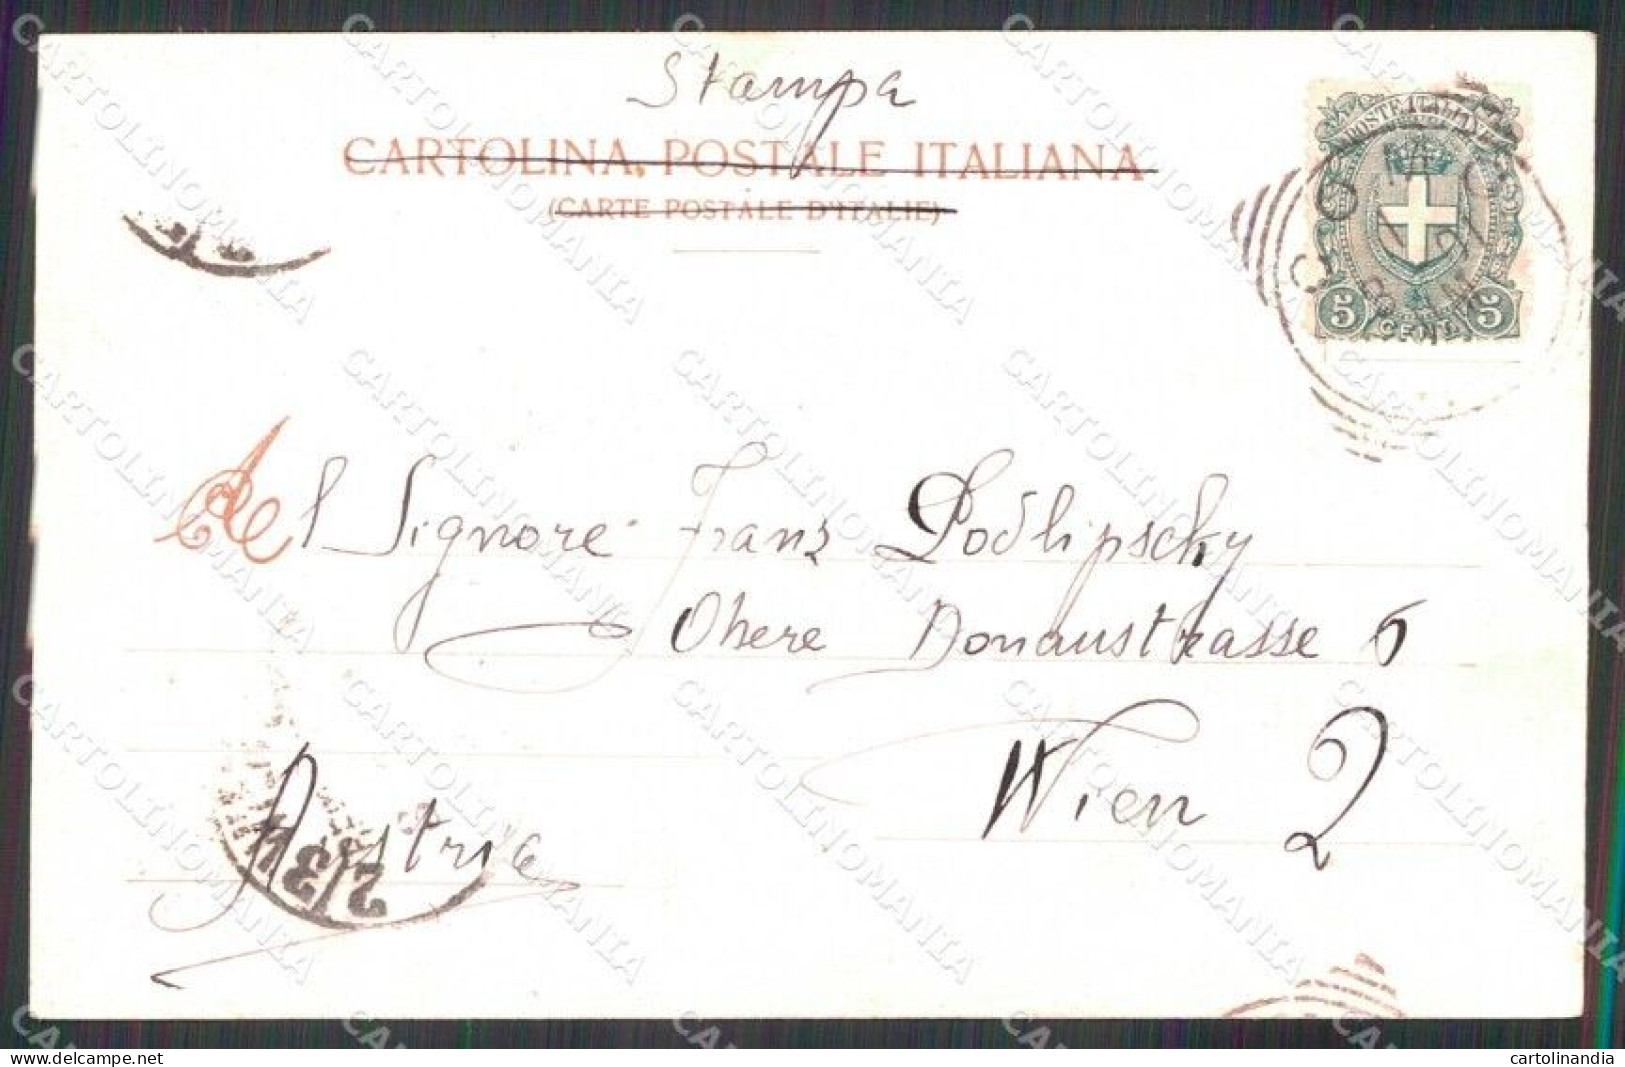 Stampa
CARTOLINA POSTALE ITALIANA
(CARTE POSTALE D'ITALIE)
POSTE ITALIANE
5 CENT. 5
Al Signore Franz Podlipschky
Obere Donaustrasse 6
Wien 2
Austria
2/3
CARTOLINOMANIA
cartolinandia